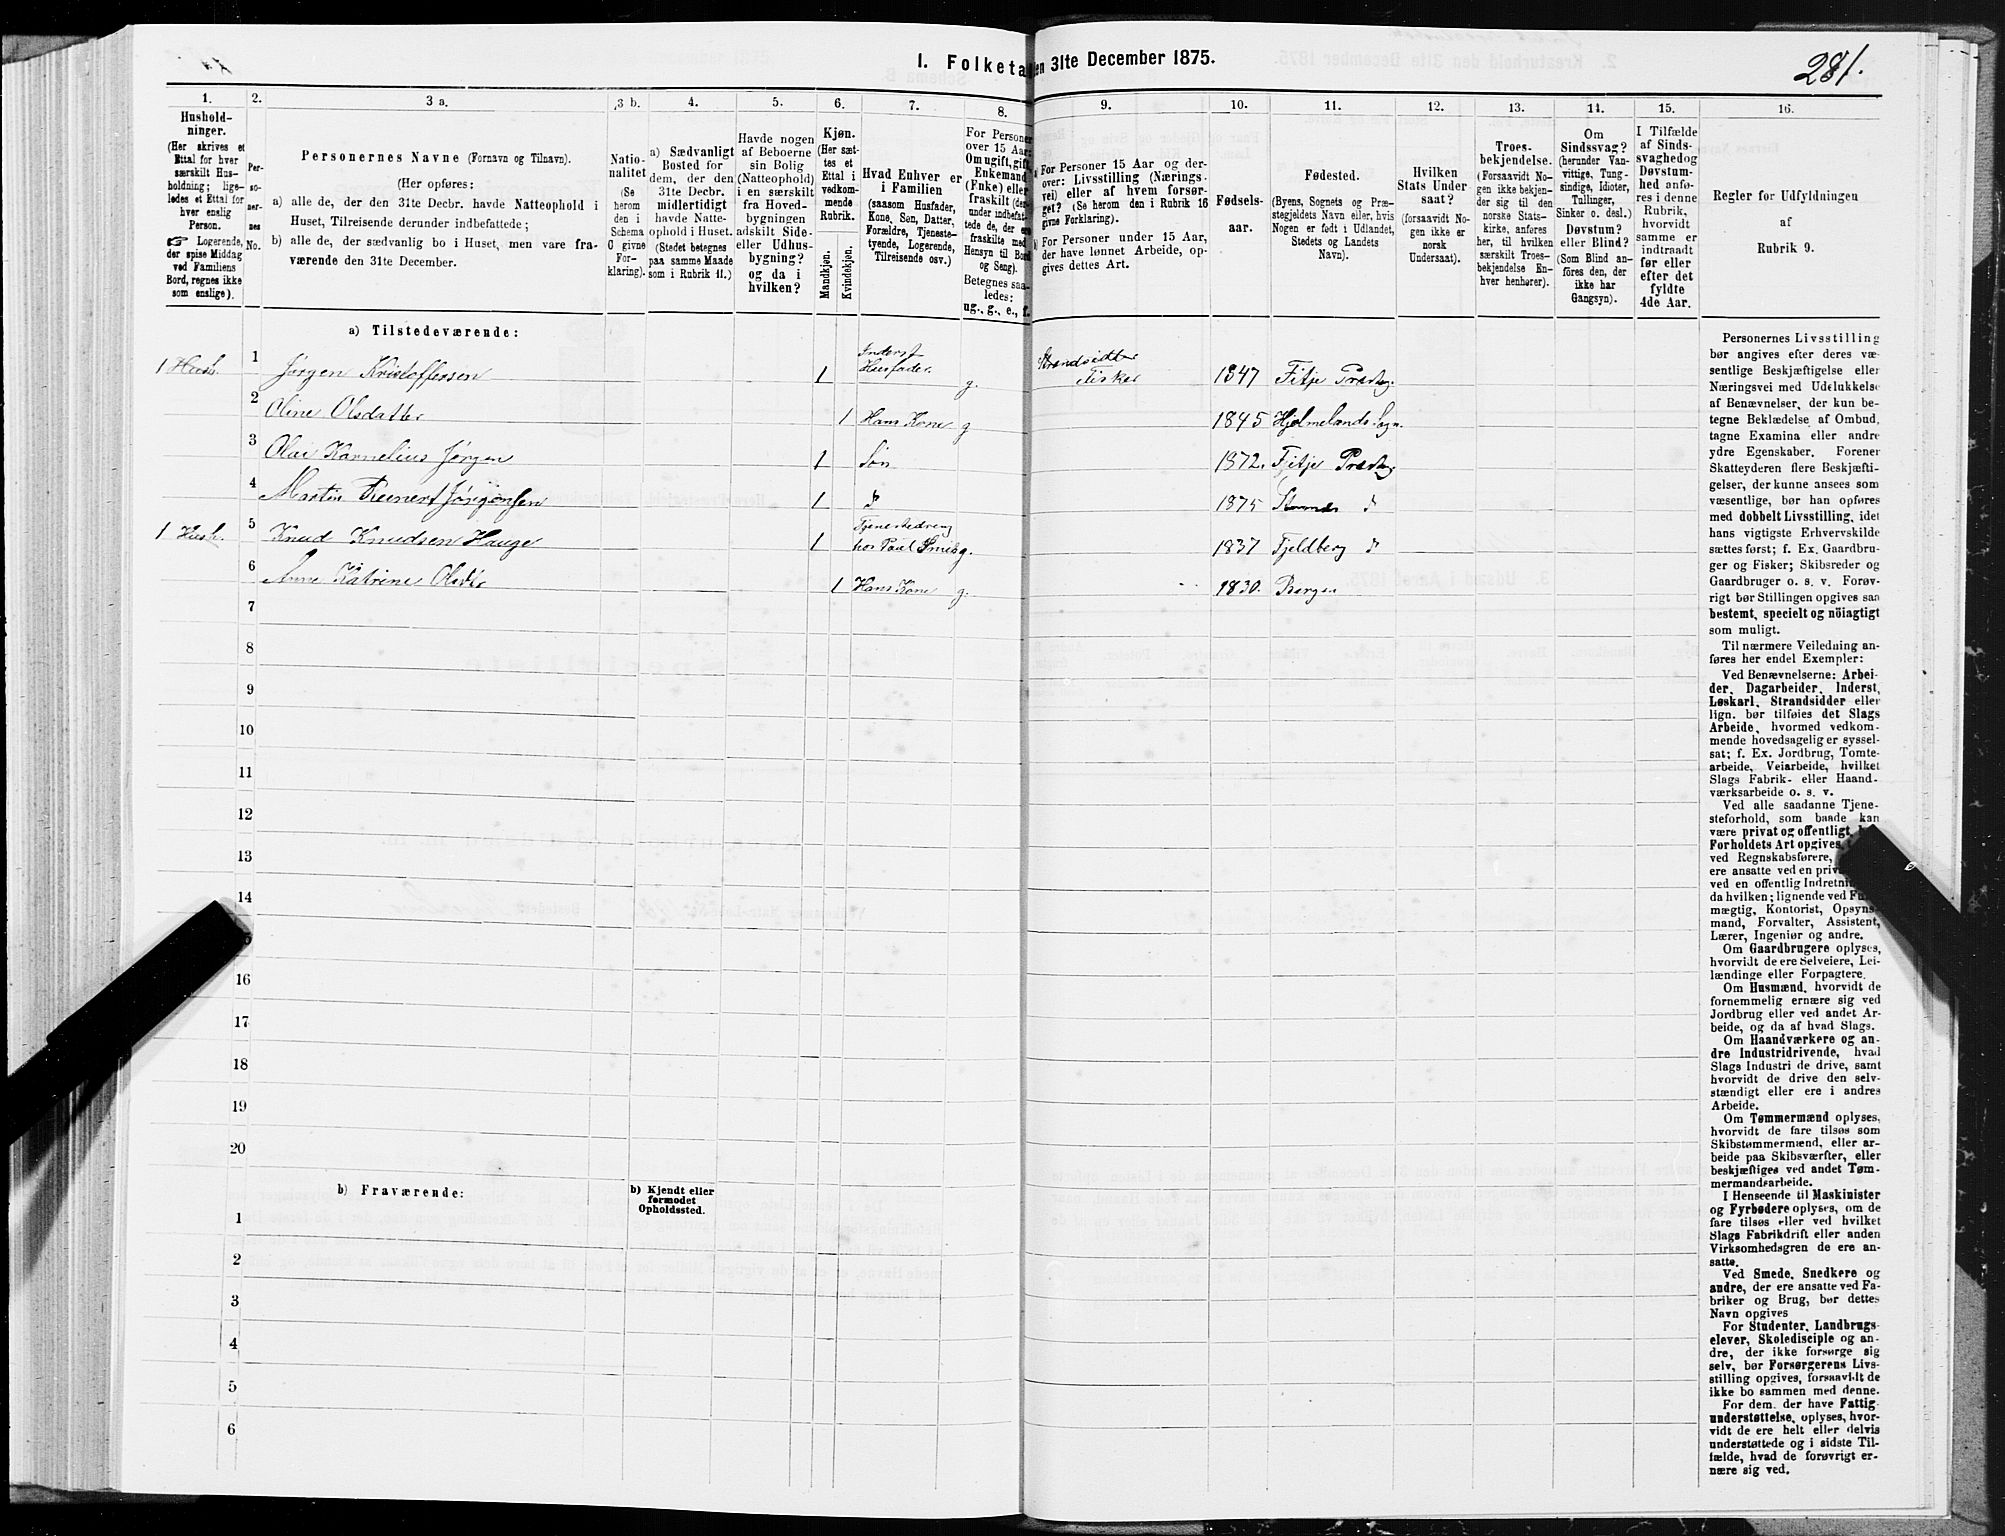 I. Folketa en 31te December 1875.
281.
1.
Hushold-
ninger.
(Her skrives et
Ettal for hver
særskilt Hus-
holdning; lige-
ledes et Ettal for
hver enslig
Person.
☞ Logerende,
der spise Middag
ved Familiens
Bord, regnes ikke
som enslige).
2.
Per-
so-
ner-
nes
No.
3 a.
Personernes Navne (Fornavn og Tilnavn).
(Her opføres:
a) alle de, der den 31te Decbr. havde Natteophold i
Huset, Tilreisende derunder indbefattede;
b) alle de, der sædvanlig bo i Huset, men vare fra-
værende den 31te December.
3 b.
Natio-
nalitet
(Se
herom
den i
Schema
C givne
For-
klaring).
4.
a) Sædvanligt
Bosted for
dem, der den
31te Decbr.
midlertidigt
havde Natte-
ophold i Huset.
(Stedet betegnes
paa samme Maade
som i Rubrik 11.)
5.
Havde nogen
af Beboerne
sin Bolig
(Natteophold)
i en særskilt
fra Hoved-
bygningen
adskilt Side-
eller Udhus-
bygning?
og da i
hvilken?
6.
Kjøn.
(Her sæt-
tes et
Ettal i
vedkom-
mende
Rubrik.
Mandkjøn.
Kvindekjøn.
7.
Hvad Enhver er
i Familien
(saasom Husfader,
Kone, Søn, Datter,
Forældre, Tjeneste-
tyende, Logerende,
Tilreisende osv.)
8.
For Personer
over 15 Aar:
Om ugift, gift,
Enkemand
(Enke) eller
fraskilt (der-
under indbefat-
tede de, der ere
fraskilte med
Hensyn til Bord
og Seng).
Betegnes saa-
ledes:
ug., g., e., f.
9.
a) For Personer 15 Aar og der-
over: Livsstilling (Nærings-
vei) eller af hvem forsør-
get? (Se herom den i Rubrik 16
givne Forklaring).
b) For Personer under 15 Aar,
der have lønnet Arbeide, op-
gives dettes Art.
10.
Fødsels-
aar.
11.
Fødested.
(Byens, Sognets og Præ-
stegjeldets Navn eller, hvis
Nogen er født i Udlandet,
Stedets og Landets
Navn).
12.
Hvilken
Stats Under
saat?
(forsaavidt No-
gen ikke er
norsk
Undersaat).
13.
Troes-
bekjendelse.
(Forsaavidt No-
gen ikke bekjen-
der sig til den
norske Stats-
kirke, anføres
her, til hvilken
særskilt Troes-
bekjendelse En-
hver henhører).
14.
Om
Sindssvag?
(herunder Van-
vittige, Tung-
sindige, Idioter,
Tullinger,
Sinker o. desl.)
Døvstum?
eller Blind?
(Som Blind an-
føres den, der
ikke har
Gangsyn).
15.
I Tilfælde
af Sinds-
svaghed og
Døvstum-
hed anfø-
res i denne
Rubrik,
hvorvidt
samme er
indtraadt
før eller
efter det
fyldte
4de Aar.
16.
Regler for Udfyldningen
af
Rubrik 9.
a) Tilstedeværende:
1 Hush. 1 Jørgen Kristoffersen 1 Inderst Husfader. g. Strandsidder Fisker 1847 Fitje Præstg.
2 Oline Olsdatter 1 Hans Kone g 1845 Hjelmelands Sogn.
3 Olai Kornelius Jørgen 1 Søn 1872. Fitje Præstg
4 Martin Reinert Jørgensen 1 d 1875 d
1 Hush. 5 Knud Knudsen Hauge 1 Tjenestedreng hos Paul g. 1837 Fjeldberg d
6 Anne Katrine Olsdtr 1 Hans Kone g. 1830. Bergen
7
8
9
10
11
12
13
14
16
17
18
19
20
b) Fraværende:
b) Kjendt eller
formodet
Opholdssted.
1
2
3
4
5
6
Personernes Livsstilling
bør angives efter deres væ-
sentlige Beskjæftigelse eller
Næringsvei med Udelukkelse
af Benævnelser, der kun be-
tegne Beklædelse af Ombud,
tagne Examina eller andre
ydre Egenskaber. Forener
Skatteyderen flere Beskjæfti-
gelser, der kunne ansees som
væsentlige, bør han opføres
med dobbelt Livsstilling, idet
hans vigtigste Erhvervskilde
sættes først; f. Ex. Gaardbru-
ger og Fisker; Skibsreder og
Gaardbruger o. s. v. Forøv-
rigt bør Stillingen opgives saa
bestemt, specielt og nöiagtigt
som muligt.
Til nærmere Veiledning an-
føres her endel Exempler:
Ved Benævnelserne: Arbei-
der, Dagarbeider, Inderst,
Løskarl, Strandsidder eller
lign. bør tilføies det Slags
Arbeide, hvormed vedkom-
mende hovedsagelig er syssel-
sat; f. Ex. Jordbrug, Tomte-
arbeide, Veiarbeide, hvilket
Slags Fabrik- eller Haand-
værksarbeide o. s. v.
Ved alle saadanne Tjene-
steforhold, som baade kan
være privat og offentligt,
Forholdets Art opgives,
ved Regnskabsførere,
ere ansatte ved en
ved en offentlig
da hvilken; lignende ved
mægtig, Kontorist, Opsyns-
mand, Forvalter, Assistent,
Lærer, Ingeniør og andre.
Om Gaardbrugere oplyses,
hvorvidt de ere Selveiere, Lei-
lændinge eller Forpagtere.
Om Husmænd, hvorvidt de
fornemmelig ernære sig ved
Jordbrug eller ved andet Ar-
beide, og da af hvad Slags.
Om Haandværkere og an-
dre Industridrivende, hvad
Slags Industri de drive, samt
hvorvidt de drive den selv-
stændigt eller ere i andres
Arbeide.
Om Tømmermænd oplyses,
hvorvidt de fare tilsøs som
Skibstømmermænd, eller ar-
beide paa Skibsværfter, eller
beskjæftiges ved andet Tøm-
mermandsarbeide.
I Henseende til Maskinister
og Fyrbødere oplyses, om de
fare tilsøs eller ved hvilket
Slags Fabrikdrift eller anden
Virksomhedsgren de ere an-
satte.
Ved Smede, Snedkere og
andre, der ere ansatte ved Fa-
briker og Brug, bør dettes
Navn opgives
For Studenter, Landbrugs-
elever, Skoledisciple og an-
dre, der ikke forsørge sig
selv, bør Forsørgerens Livs-
stilling opgives, forsaavidt de
ikke bo sammen med denne.
For dem, der have Fattig-
understøttelse, oplyses, hvor-
vidt de ere helt eller delvis
understøttede og i sidste Til-
fælde, hvad de forøvrigt er-
nære sig ved.